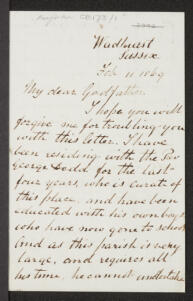 Wadhurst
Sussex
Feb 11 1869
My dear Godfather
I hope you will
forgive me for troubling you
with this letter. I have
been residing with the Rev
George Dodd for the last
four years, who is curate of
this place, and have been
educated with his own boys
who have now gone to school
and as this parish is very
large, and requires all
his time, he cannot undertake